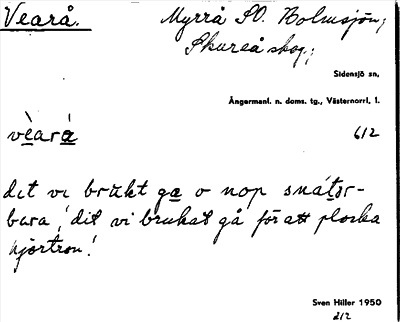 Vearå.
Myrrå SO. Bolmsjön,
Skureå skog.,
Sidensjö sn.
Ångermanl. n. doms. tg., Västernorrl. l.
vèará
612
dit vi brukt ga o nop snátǝr-
bara, 'dit vi brukat gå för att plocka
hjortron!
Sven Hiller 1950
212